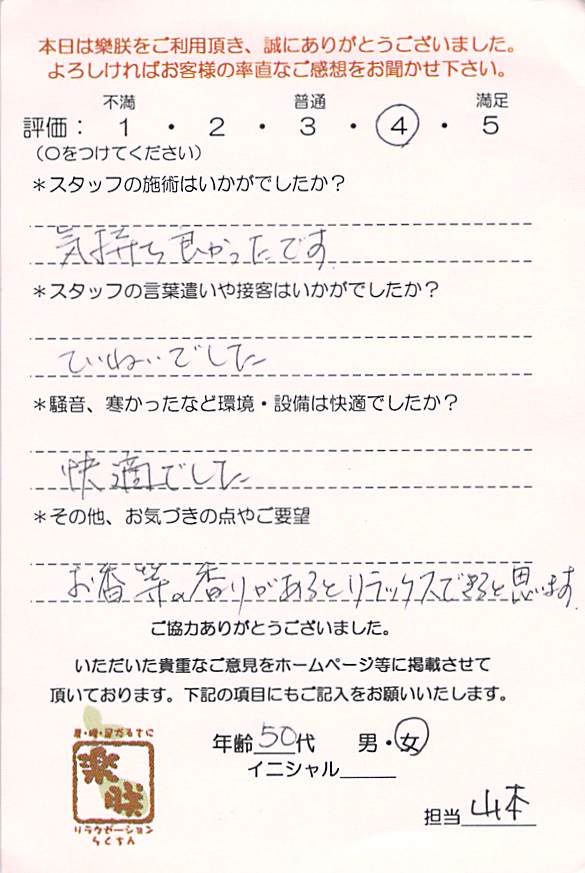 本日は樂朕をご利用頂き、誠にありがとうございました。
よろしければお客様の率直なご感想をお聞かせ下さい。
不満 普通 満足
評価： 1 ・ 2 ・ 3 ・ 4 ・ 5
（○をつけてください）
＊スタッフの施術はいかがでしたか？
気持ち良かったです
＊スタッフの言葉遣いや接客はいかがでしたか？
ていねいでした
＊騒音、寒かったなど環境・設備は快適でしたか？
快適でした
＊その他、お気づきの点やご要望
お香等の香りがあるとリラックスできると思います
ご協力ありがとうございました。
いただいた貴重なご意見をホームページ等に掲載させて
頂いております。下記の項目にもご記入をお願いいたします。
年齢50代 男・女
イニシャル
樂朕
リラクゼーション
らくちん
担当 山本